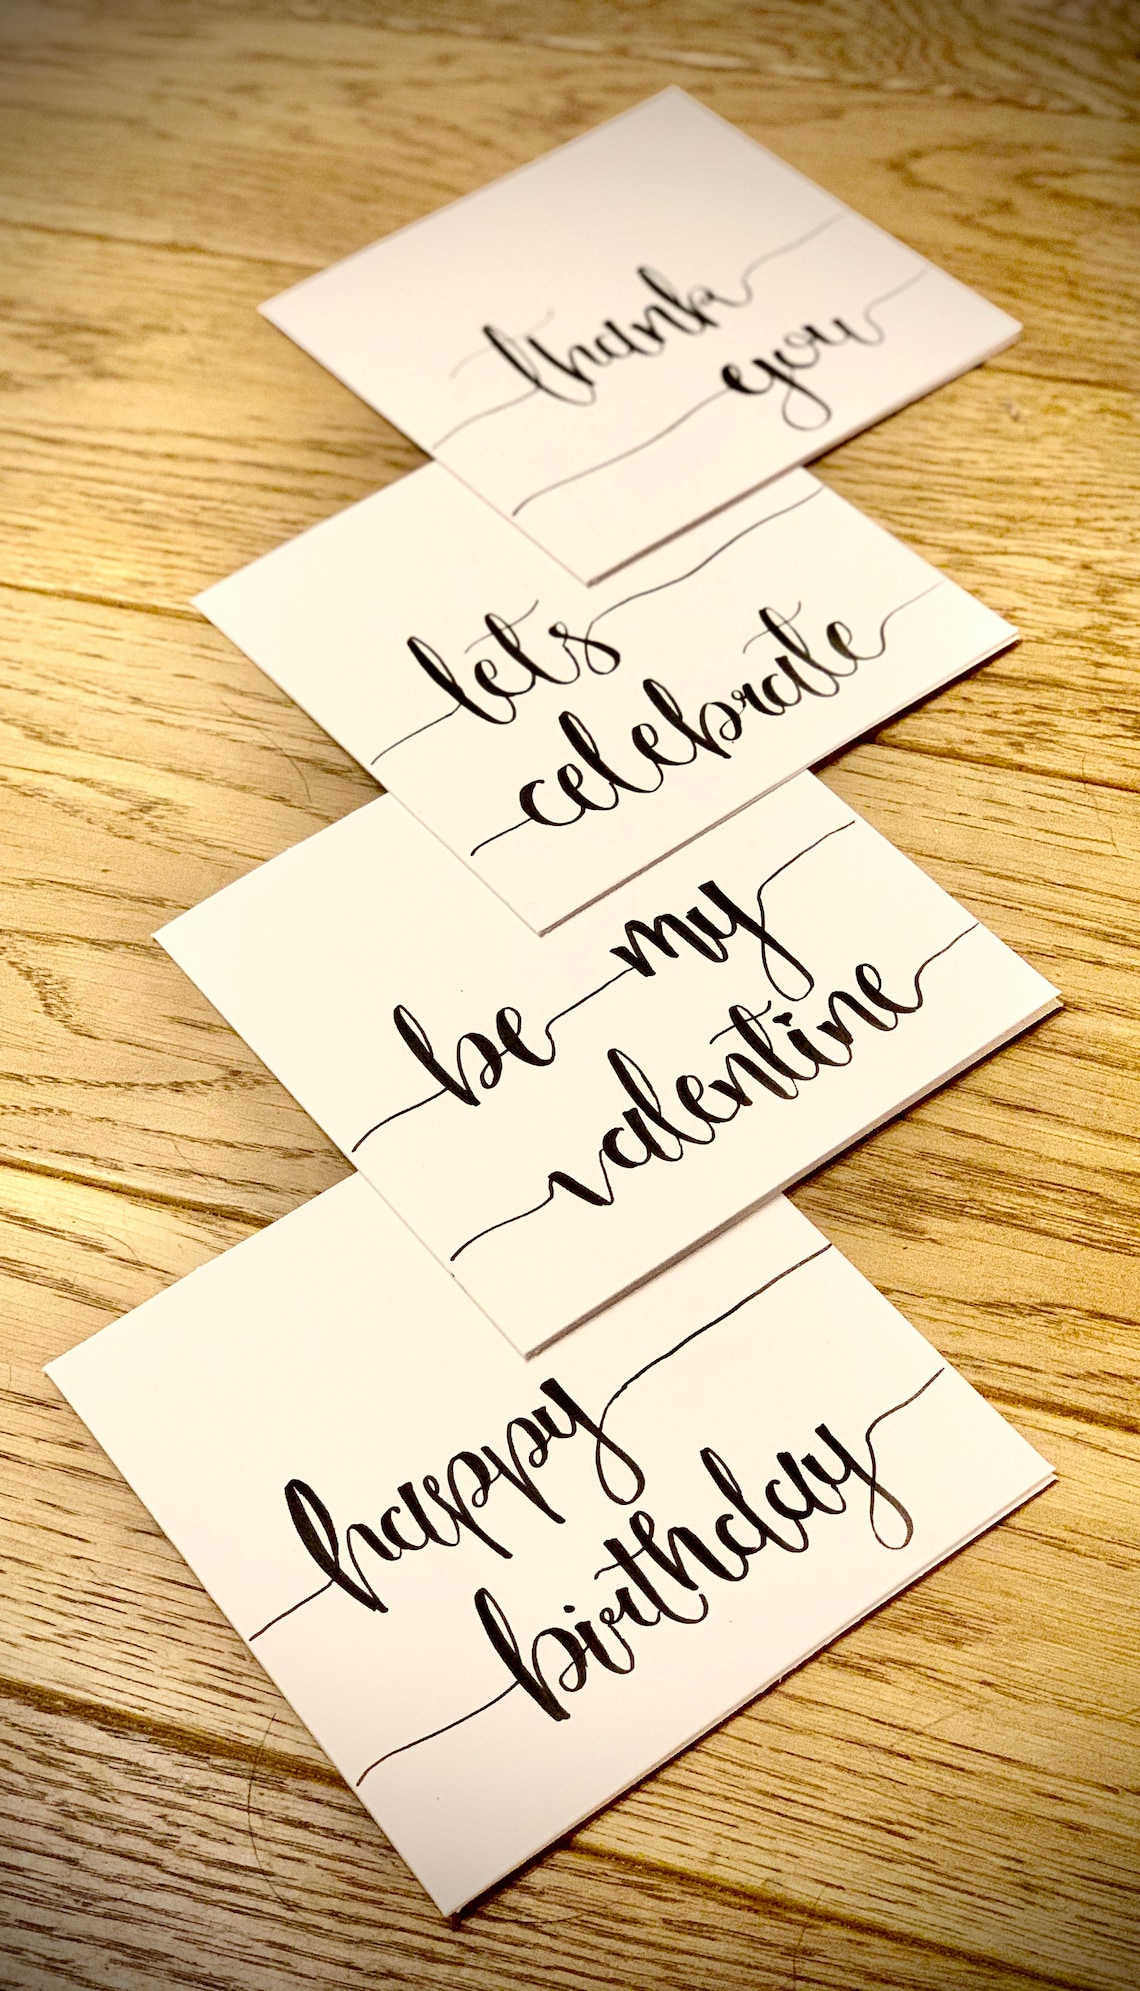 thank
you
let's
celebrate
be my
valentine
happy
birthday